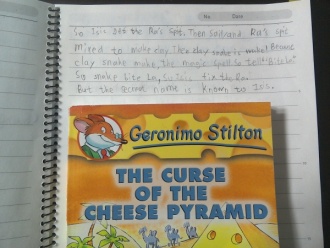 No. Date
So Isis get the Ra's spit. Then Soil and Ra's spit
Mixed to make clay. The clay snake is make! Because
clay snake make, the magic spell So tell "Bite Ra"
So snake bite Ra, So Isis fix the Ra.
But the secret name is known to Isis.
Geronimo Stilton
THE CURSE
OF THE
CHEESE PYRAMID